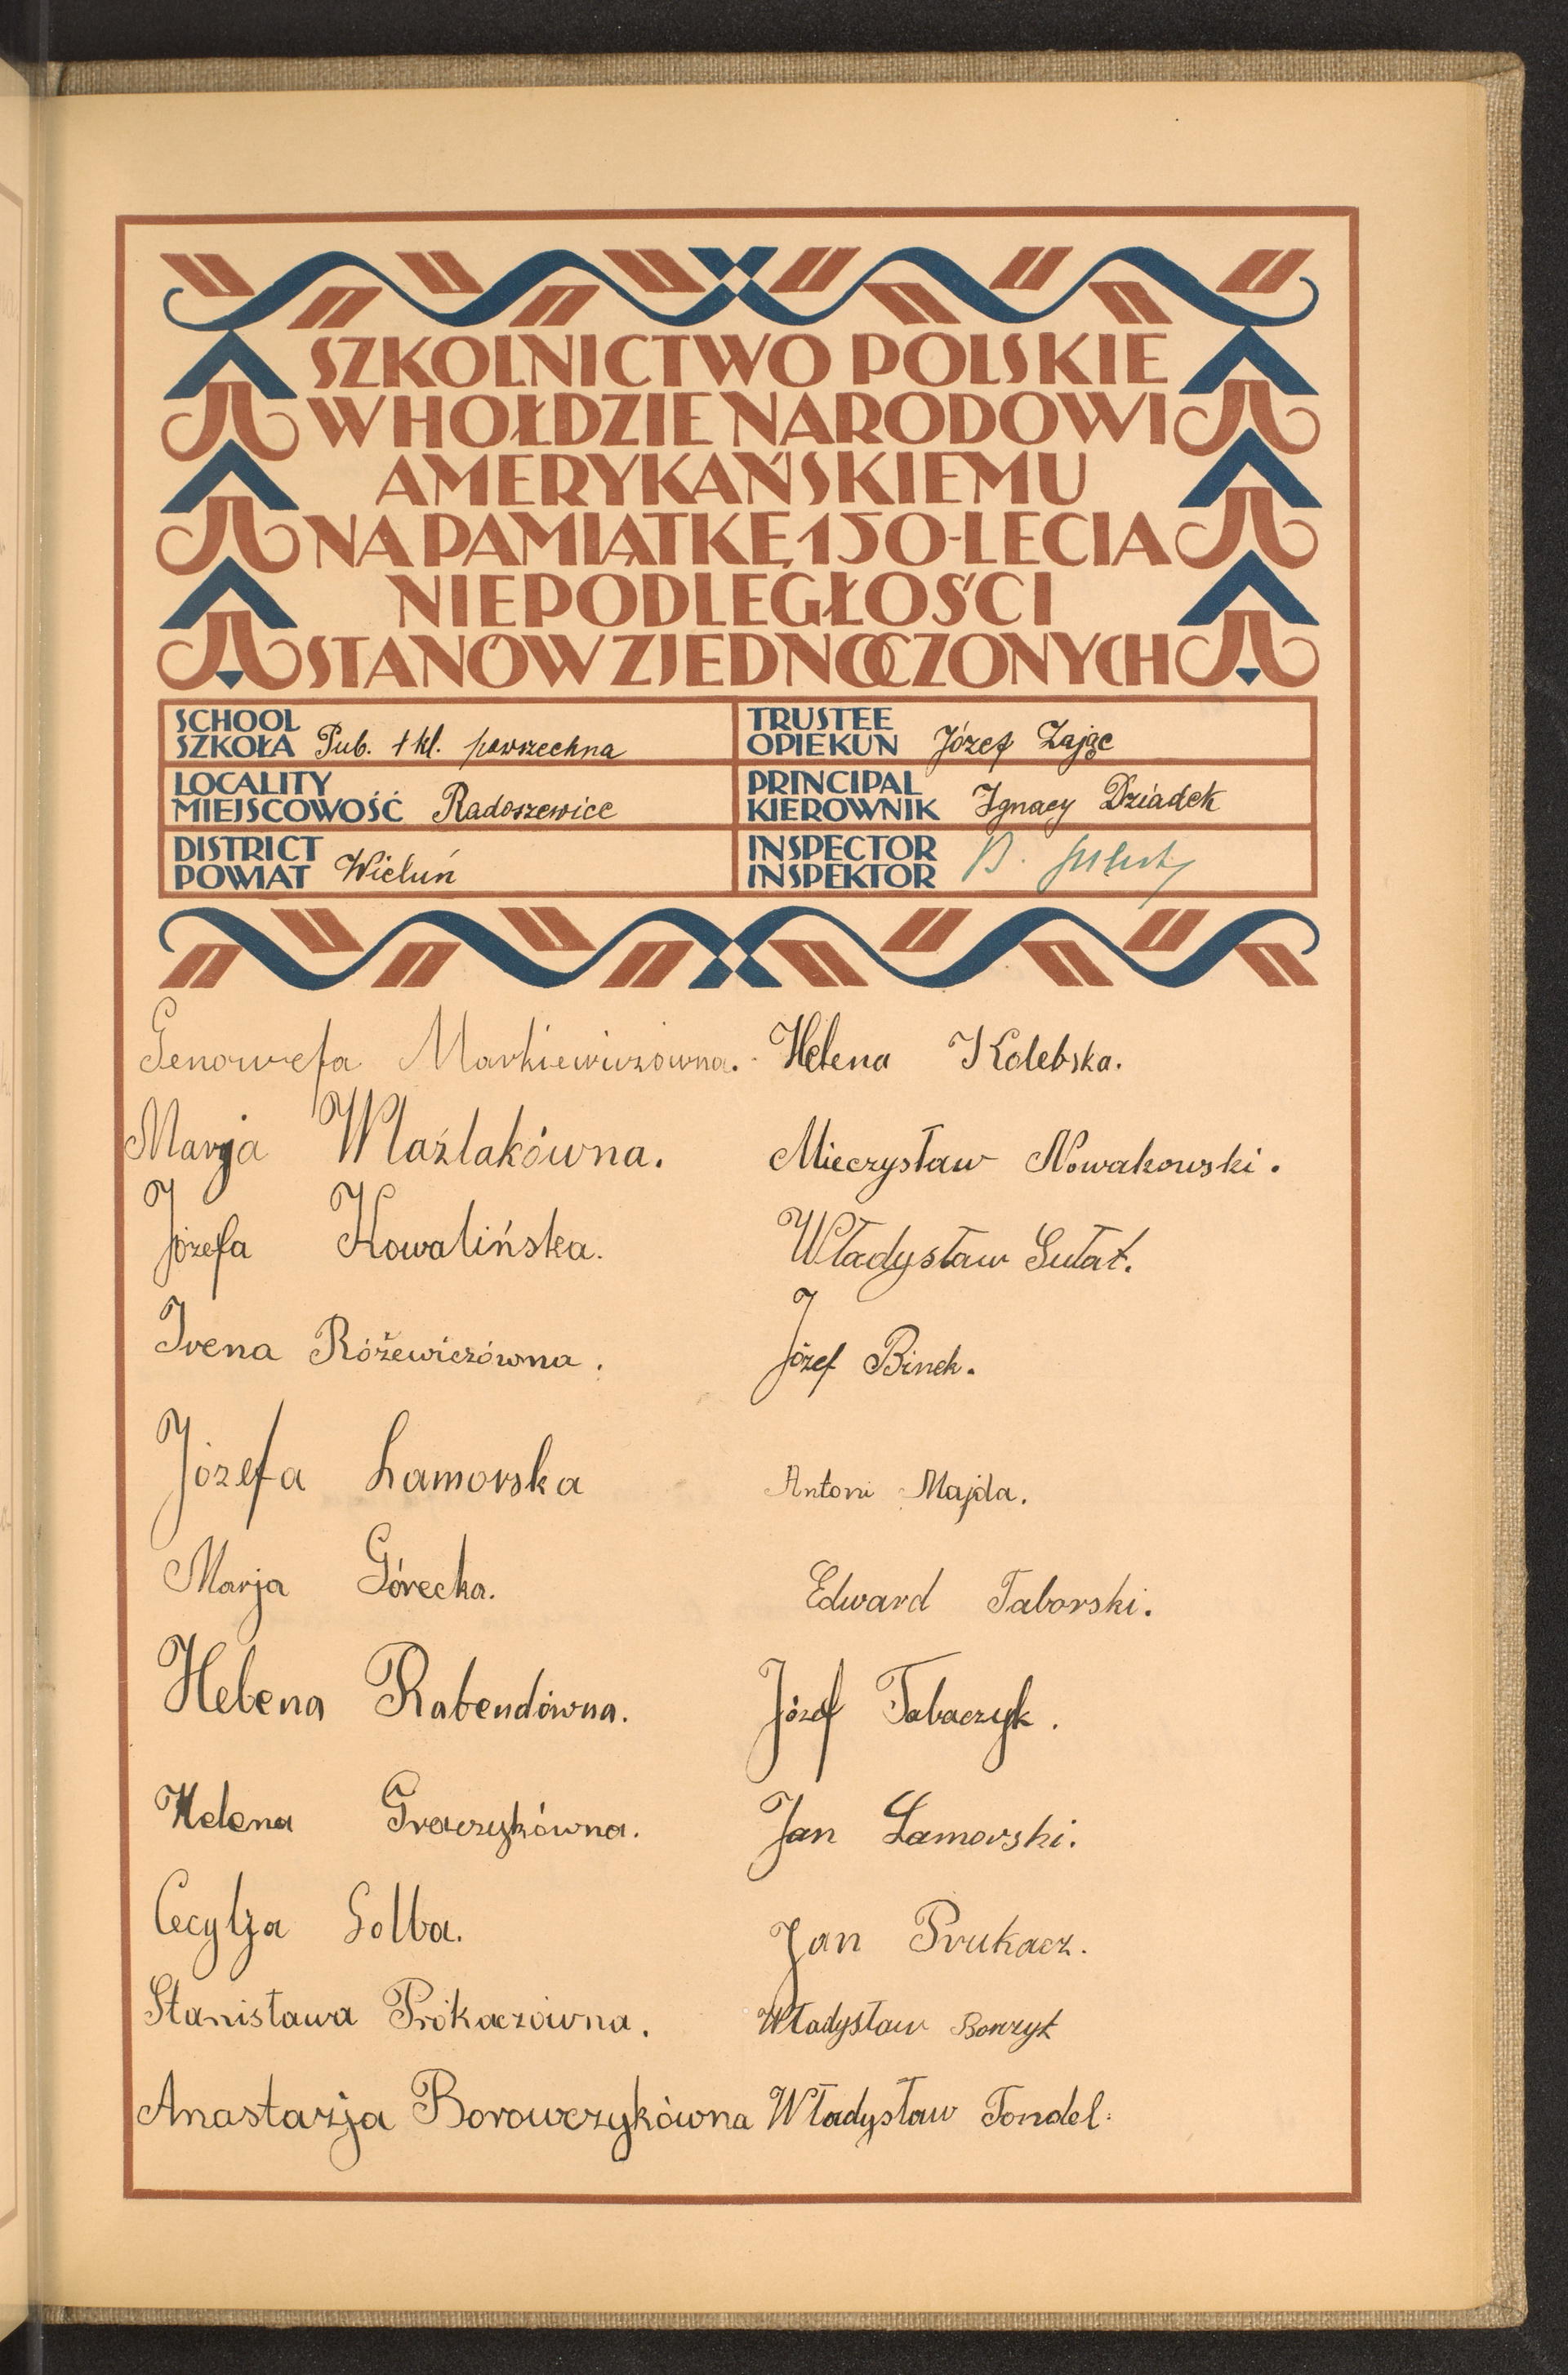 SZKOLNICTWO POLSKIE
W HOŁDZIE NARODOWI
AMERYKAŃSKIEMU
NA PAMIĄTKĘ 150-LECIA
NIEPODLEGŁOŚCI
STANÓW ZJEDNOCZONYCH
SCHOOL
SZKOŁA Pub. kl. powszechna
TRUSTEE
OPIEKUN Józef Zając
LOCALITY
MIEJSCOWOŚĆ Radoszewice
PRINCIPAL
KIEROWNIK Ignacy Dziadek
DISTRICT
POWIAT Wieluń
INSPECTOR
INSPEKTOR B.
Genowefa Markiewiczówna.
Marja Wlaźlakówna.
Józefa Kowalińska.
Irena Różewiczówna.
Józefa Lamorska
Marja Górecka.
Helena Rabendówna.
Helena Graczykówna.
Cecylja Golba.
Stanisława Prókaczówna.
Anastazja Borowczykówna
Helena Kolebska.
Mieczysław Nowakowski.
Władysław Sułat.
Józef Binek.
Antoni Majda.
Edward Taborski.
Józef Tabaczyk.
Jan Lamorski.
Jan Prukacz.
Władysław
Władysław Tondel.